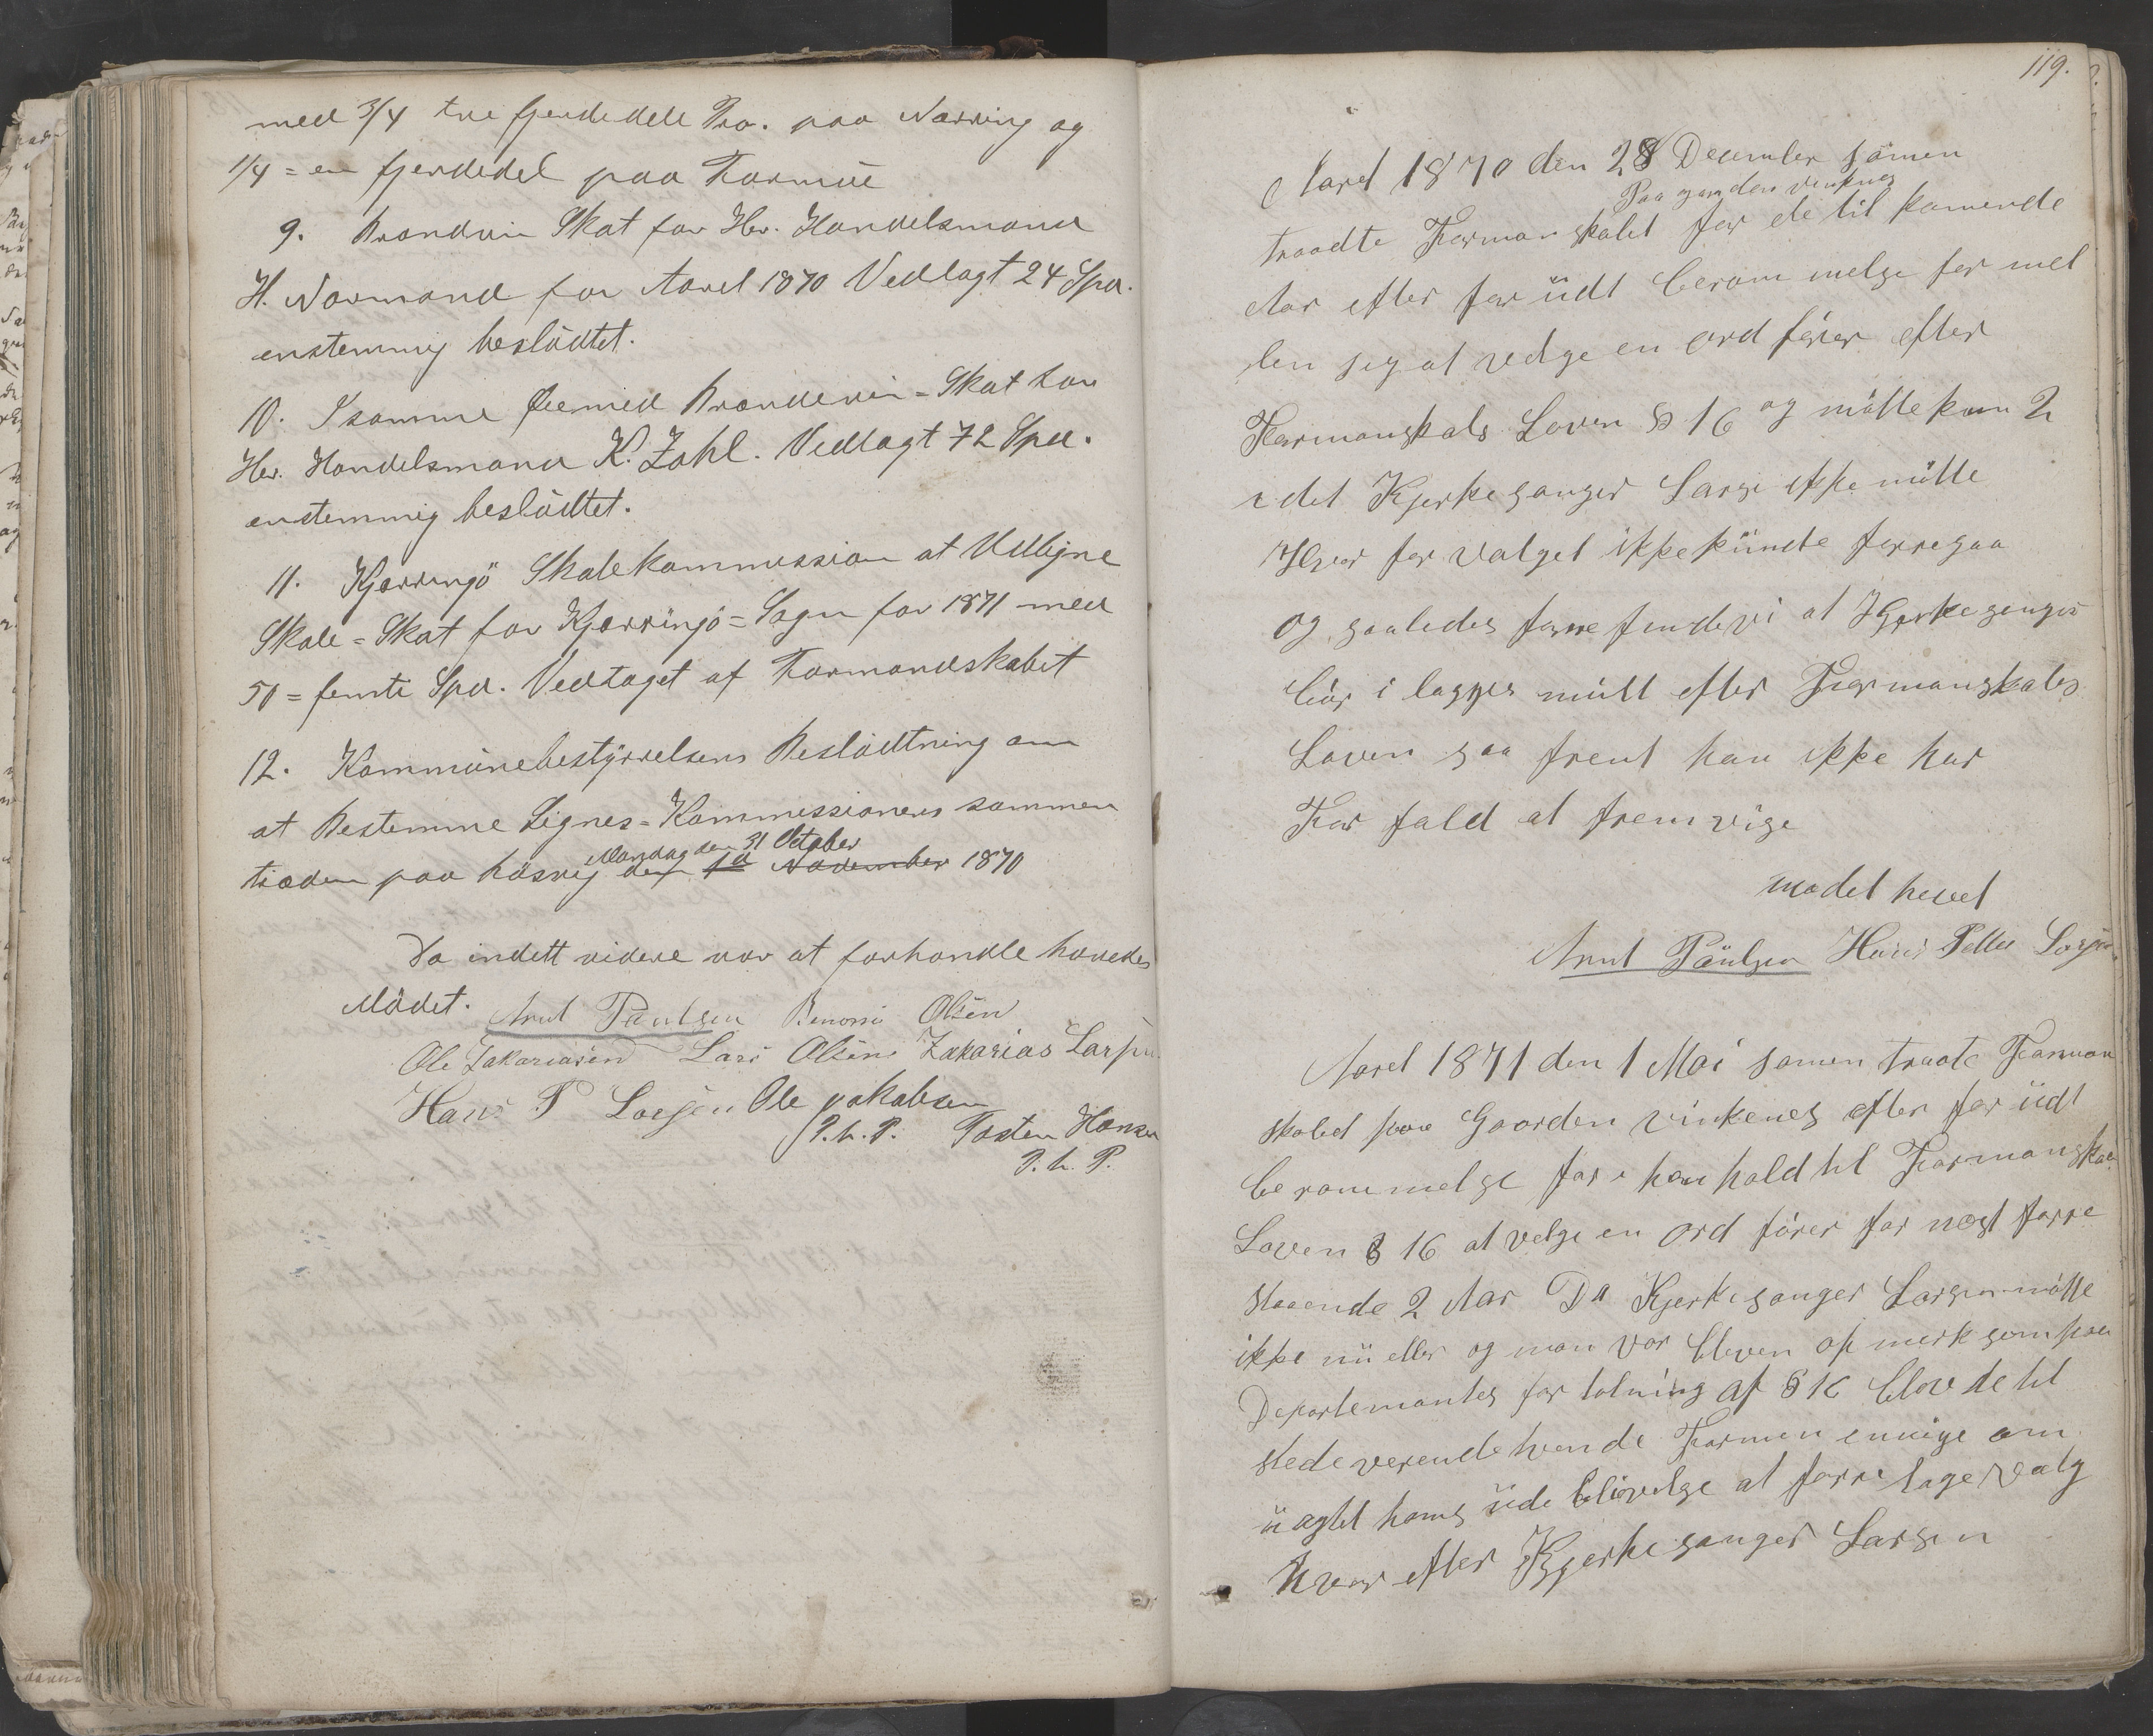 med 3/4 tre fjerdedele Pro. paa Næring og
1/4 = en fjerdedel paa Formüe
9. Brændvin Skat for Hr. Handelsmand
H. Normand for Aaret 1870 Vedlagt 24 Spd.
enstemmig beslüdtet.
10. I samme Øiemed Brændevin = Skat for
Hr. Handelsmand K. Zahl. Vedlagt 72 Spd.
enstemmig beslüdtet.
11. Kjerringö Skolekommission at Udligne
Skole = Skat for Kjerringö = Sogn for 1871 med
50 = femti Spd. Vedtaget af Formandskabet
12. Kommünebestÿrrelsens Beslüdtning om
at Bestemme Lignes = Kommissionens sammen
Mandag den 31 October
træden paa Kösvig den 1d November 1870
Da indett videre var at forhandle hævedes
Mödet. Arnt Paulsen Benoni Olsen
Ole Zakariasen Lars Olsen Zakarias Larsen
Hans P Larsen Ole Jakobsen
P. h. P. Tosten Hansen
P. h. P.
119.
Aaret 1870 den 28 December samen
Paa gaarden vinknes
traadte Formanskabet for de til kamende
Aar efter for üdt berammelse for mel
len sig at velge en ord förer efter
Formanskabs Loven § 16 og mötte kun 2
i det Kjerkesanger Larse ikke mötte
Hvor for valget ikke künde forregaa
og saaledes forre finde vi at Kjerkesanger
bör i legges mült efter Formanskabs
Loven saa fremt han ikke har
For fald at fremvise
mødet hevet
Arnt Paülsen Hans Petter Larsen
Aaret 1871 den 1 Mai samen traate Forman
skabet paa Gaarden vinkenes efter for üdt
berammelse for i hen hold til Formanskabs
Loven § 16 at velge en ord förer for nest forre
staaende 2 Aar Da Kjerkesanger Larsen mötte
ikke nü eller og man var bleven op merksom paa
Departemantes for tolning af § 16 blev de til
stede verende tvende Formen enige om
ü agtet hans üde blivelse at forre tage valg
hvor efter Kjerkesanger Larsen